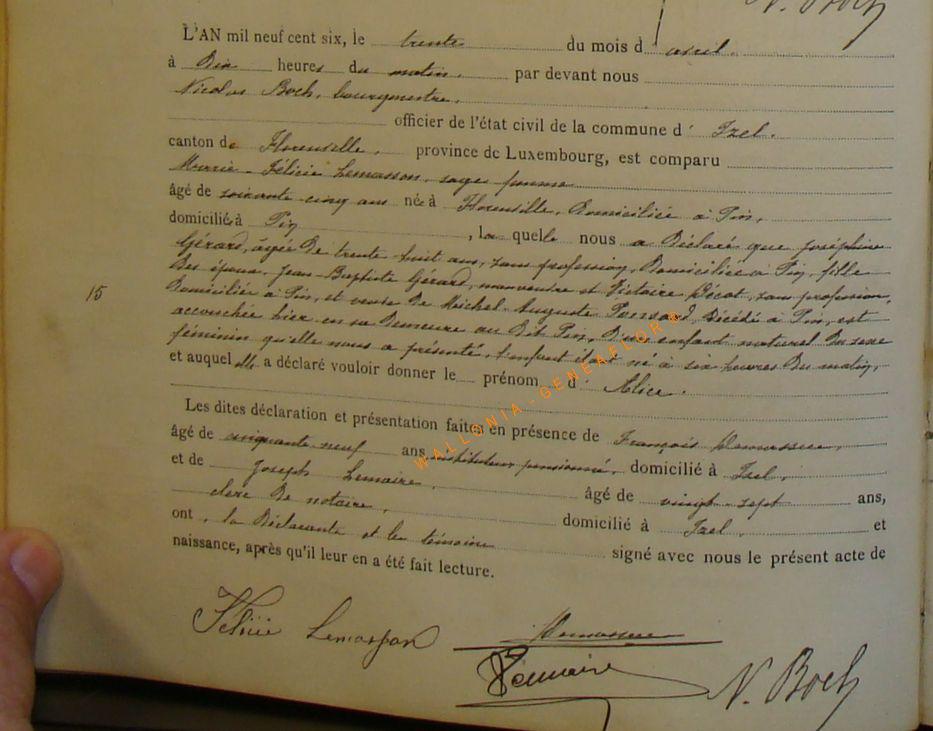 N. Boch
L'AN mil neuf cent six, le trente du mois d' avril.
à Dix heures du matin, par devant nous
Nicolas Boch, bourgmestre,
officier de l'état civil de la commune d' Izel.
canton de Florenville, province de Luxembourg, est comparu
Marie-Félicie Lemasson, sage femme
âgé de soixante cinq ans né à Florenville, Domiciliée à Pin,
domicilié à Pin, la quelle nous a Déclaré que Joséphine
Gérard, agée De trente-huit ans, sans profession, Domiciliée à Pin, fille
Des époux, Jean-Baptiste Gérard, manœuvre et Victoire Pécot, sans profession,
15 Domiciliée à Pin, et veuve De Michel-Auguste Ponsard, Décédé à Pin, est
accouchée hier en sa Demeure au Dit Pin, D'un enfant naturel Du sexe
féminin qu'elle nous a présenté, l'enfant est né à six heures Du matin,
et auquel elle a déclaré vouloir donner le prénom d' Alice.
Les dites déclaration et présentation faites en présence de François
âgé de cinquante neuf ans instituteur pensionné, domicilié à Izel,
et de Joseph Lemaire, âgé de vingt-sept ans,
clerc De notaire, domicilié à Izel, et
ont, la Déclarante et les témoins signé avec nous le présent acte de
naissance, après qu'il leur en a été fait lecture.
Félicie Lemasson
Lemaire N. Boch
WALLONIA-GENEAFLORE